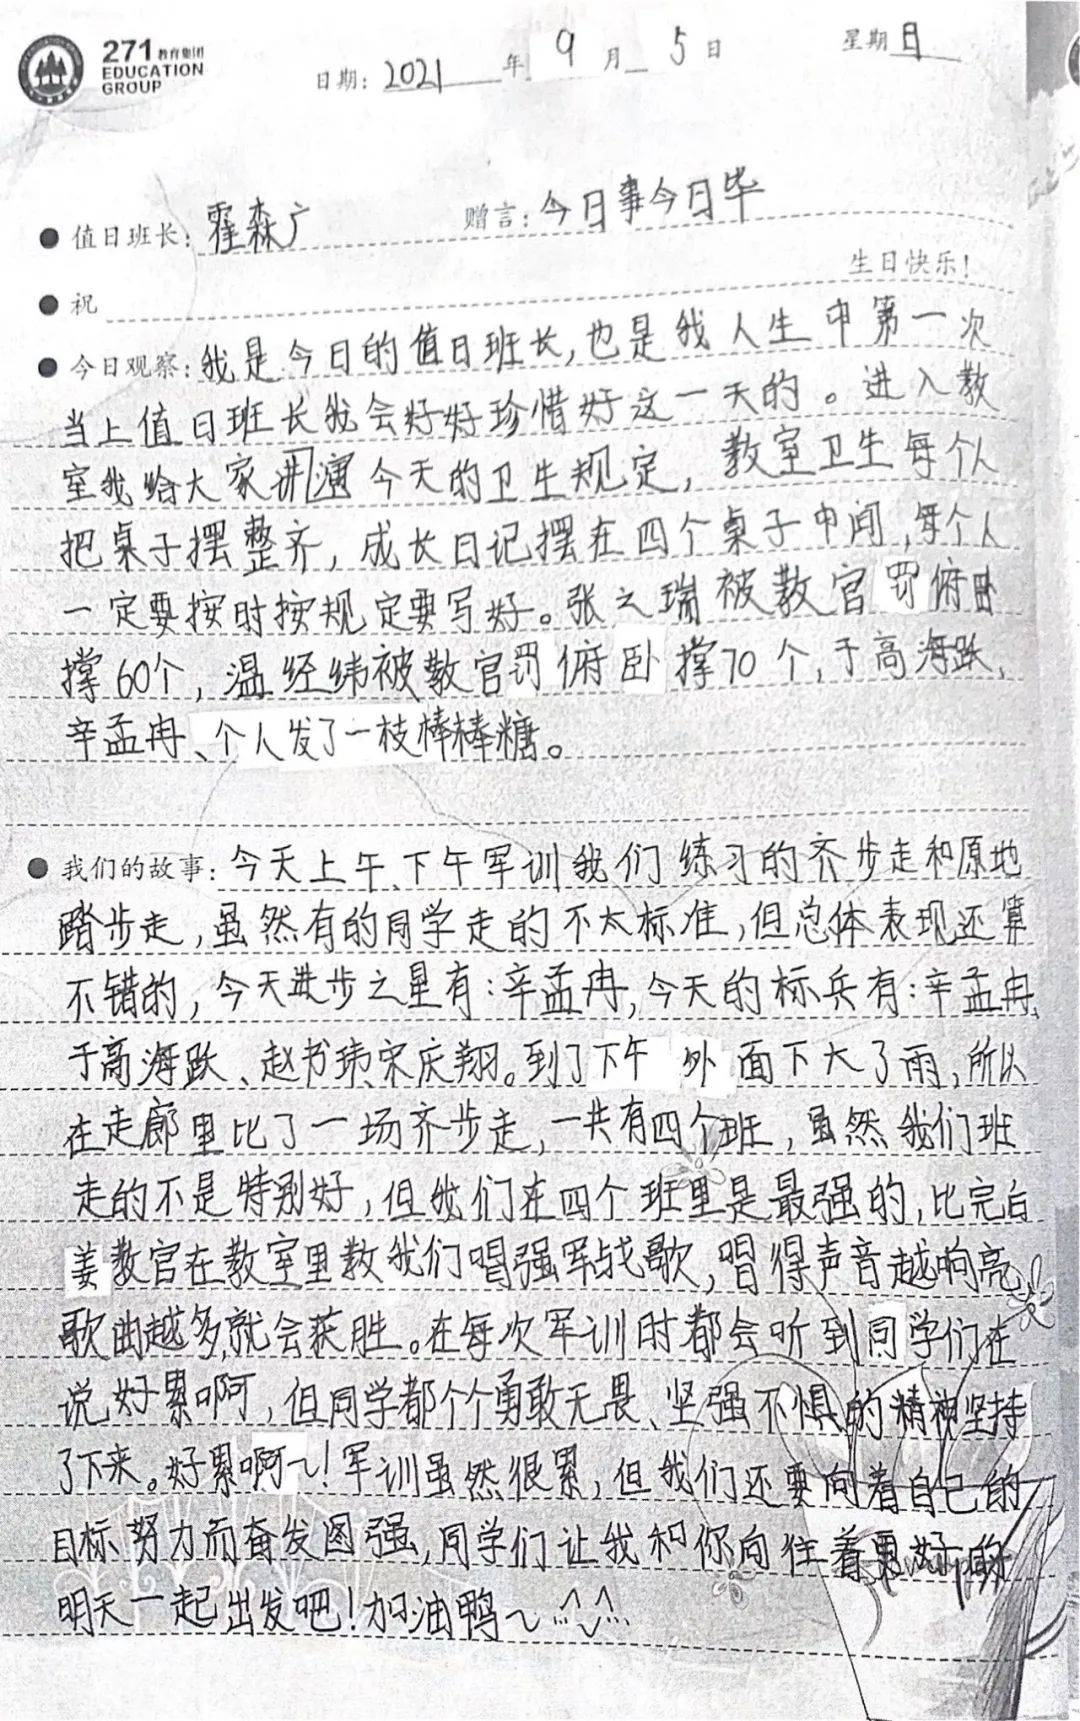 271教育集团
EDUCATION
GROUP
日期：2021年9月5日 星期日
值日班长：霍森广 赠言：今日事今日毕
祝 生日快乐！
今日观察：我是今日的值日班长，也是我人生中第一次
当上值日班长我会好好珍惜好这一天的。进入教
室我给大家讲演今天的卫生规定，教室卫生每个人
把桌子摆整齐，成长日记摆在四个桌子中间，每个人
一定要按时按规定要写好。张之瑞被教官罚俯卧
撑60个，温经纬被教官罚俯卧撑70个，于高海跃、
辛孟冉、个人发了一枝棒棒糖。
我们的故事：今天上午、下午军训我们练习的齐步走和原地
踏步走，虽然有的同学走的不太标准，但总体表现还算
不错的，今天进步之星有：辛孟冉，今天的标兵有：辛孟冉、
于高海跃、赵书玮、宋庆翔。到了下午外面下大了雨，所以
在走廊里比了一场齐步走，一共有四个班，虽然我们班
走的不是特别好，但我们在四个班里是最强的，比完白
姜教官在教室里教我们唱强军战歌，唱得声音越响亮
歌曲越多，就会获胜。在每次军训时都会听到同学们在
说好累啊，但同学都个个勇敢无畏、坚强不惧的精神坚持
了下来。好累啊~！军训虽然很累，但我们还要向着自己的
目标努力而奋发图强，同学们让我和你向往着更好的
明天一起出发吧！加油鸭~^^